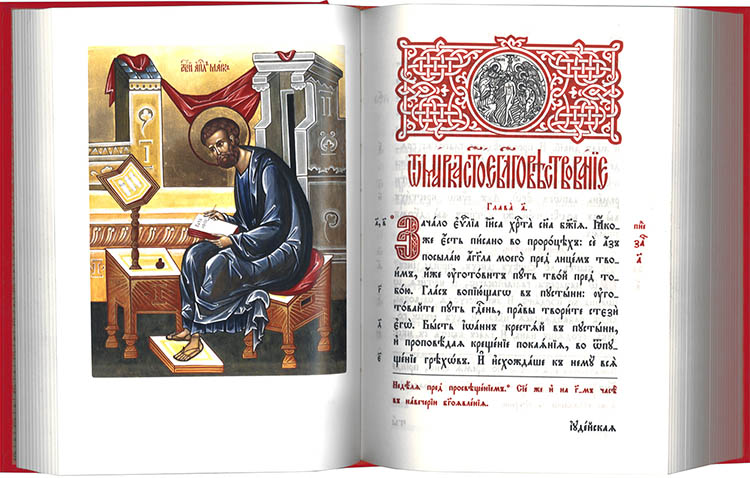 Ѿ МА́РКА СТ҃О́Е БЛ҃ГОВѢСТВОВА́НЇЕ
Глава̀ а҃.
Зача́ло є҆ѵⷢ҇лїа і҆и҃са хрⷭ҇та̀ сн҃а бж҃їѧ. Ꙗ҆́ко-
же є҆́сть пи́сано во проро́цѣхъ: сѐ а҆́зъ
посыла́ю а҆́гг҃ла моего̀ пред̾ лице́мъ тво-
и́мъ, и҆́же ᲂу҆гото́витъ пꙋ́ть тво́й пред̾ то-
бо́ю. Гла́съ вопїю́щагѡ въ пꙋсты́ни: ᲂу҆го-
то́вайте пꙋ́ть гдⷭ҇ень, пра̑вы твори́те стєзѝ
є҆гѡ̀. Бы́сть і҆ѡа́ннъ крестѧ́й въ пꙋсты́ни,
и҆ проповѣ́даѧ креще́нїе покаѧ́нїѧ, во ѿпꙋ-
ще́нїе грѣхѡ́въ. И҆ и҆схожда́ше къ немꙋ̀ всѧ̀
Недѣ́лѧ пред̾ просвѣще́нїемъ.* Сїе́ же и҆ на г҃-мъ часѣ̀
въ наве́черїи бг҃оѧвле́нїѧ.
і҆ꙋде́йскаѧ